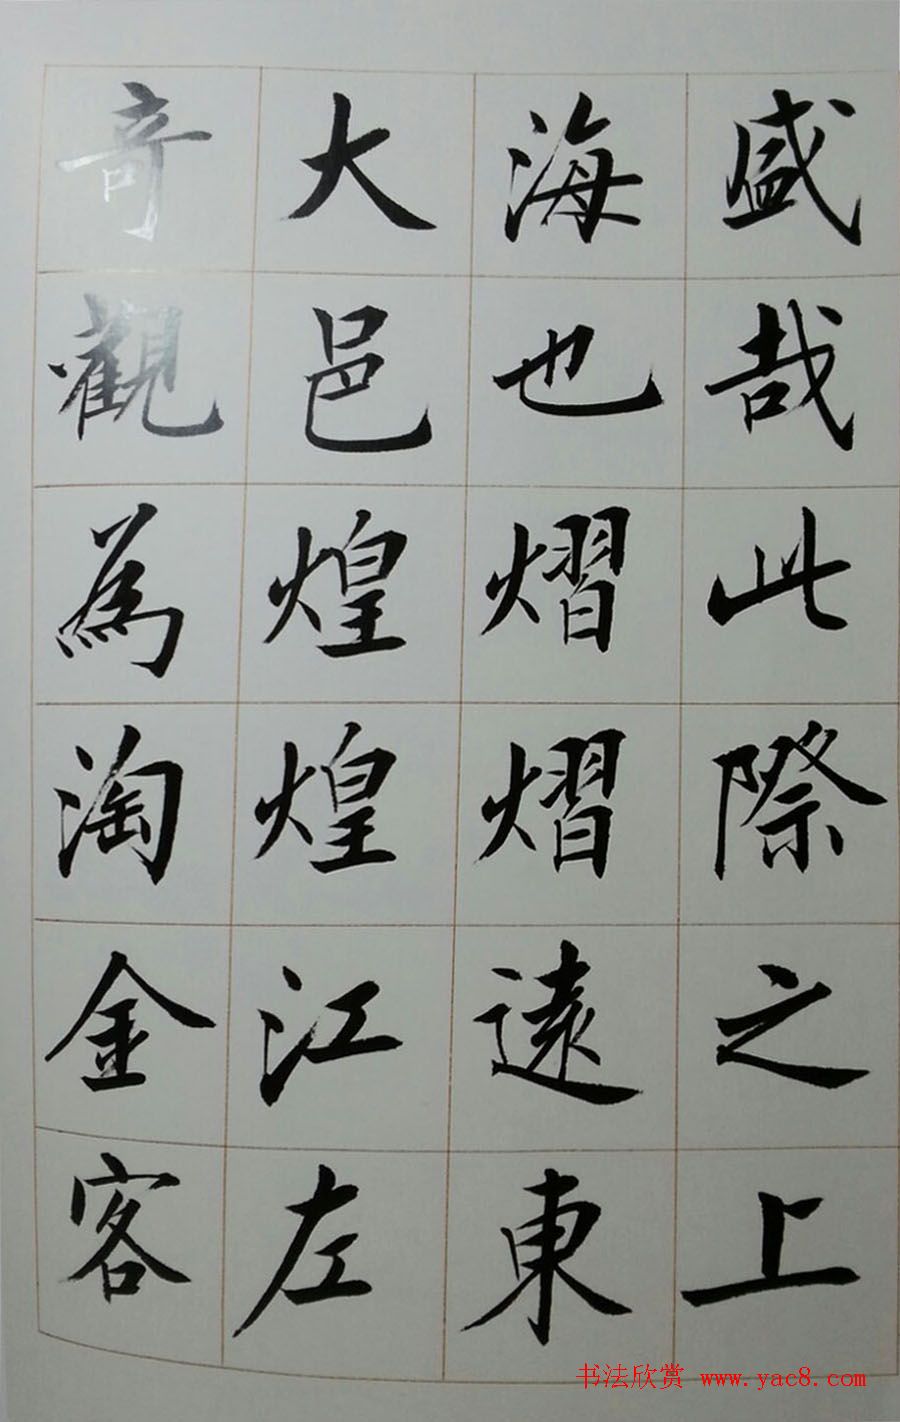 盛哉此際之上
海也熠熠遠東
大邑煌煌江左
奇觀為淘金客
书法欣赏 www.yac8.com